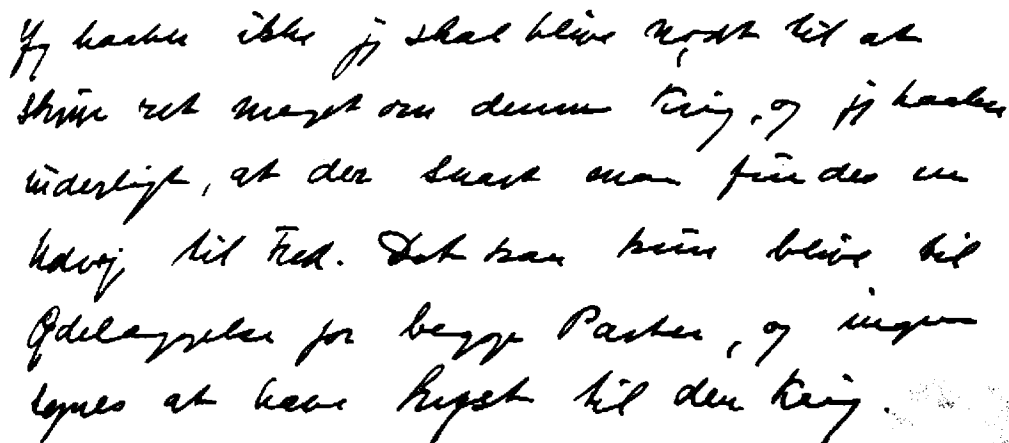 Jeg haaber ikke jeg skal blive nødt til at
skrive ret meget om denne Krig, og jeg haaber
inderligt, at der snart maa findes en
Udvej til Fred. Det kan kun blive til
Ødelæggelse for begge Parter, og ingen
synes at have Lyst til den Krig.